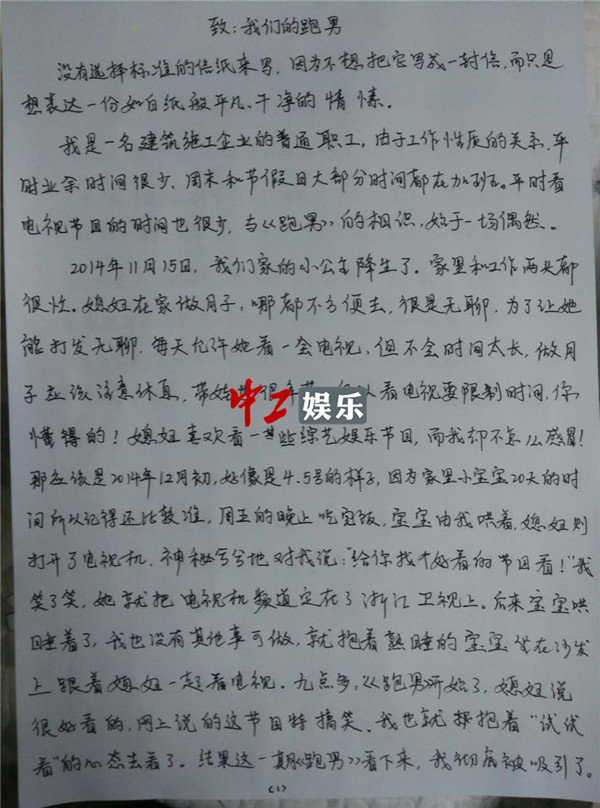 致：我们的跑男
没有选择标准的信纸来写，因为不想把它写成一封信，而只是
想表达一份如白纸般平凡、干净的情愫。
我是一名建筑施工企业的普通职工，由于工作性质的关系，平
时业余时间很少，周末和节假日大部分时间都在加班。平时看
电视节目的时间也很少，与《跑男》的相识，始于一场偶然。
2014年11月15日，我们家的小公主降生了。家里和工作两头都
很忙。媳妇在家做月子，哪都不方便去，很是无聊，为了让她
能打发无聊，每天允许她看一会电视，但不会时间太长，做月
子应该注意休息，带娃 以看电视要限制时间，你
中工娱乐
懂得的！媳妇喜欢看一些综艺娱乐节目，而我却不怎么感冒！
那应该是2014年12月初，好像是4.5号的样子，因为家里小宝宝20天的时
间所以记得还比较准，周五的晚上吃完饭，宝宝由我哄着，媳妇则
打开了电视机，神秘兮兮地对我说：“给你找个好看的节目看！”我
笑了笑，她就把电视机频道定在了浙江卫视上。后来宝宝哄
睡着了，我也没有其他事可做，就抱着熟睡的宝宝坐在沙发
上跟着媳妇一起看电视。九点多，《跑男》开始了，媳妇说
很好看的，网上说的这节目特搞笑。我也就抱着“试试
看”的心态去看了。结果这一期《跑男》看下来，我彻底被吸引了。
(1)